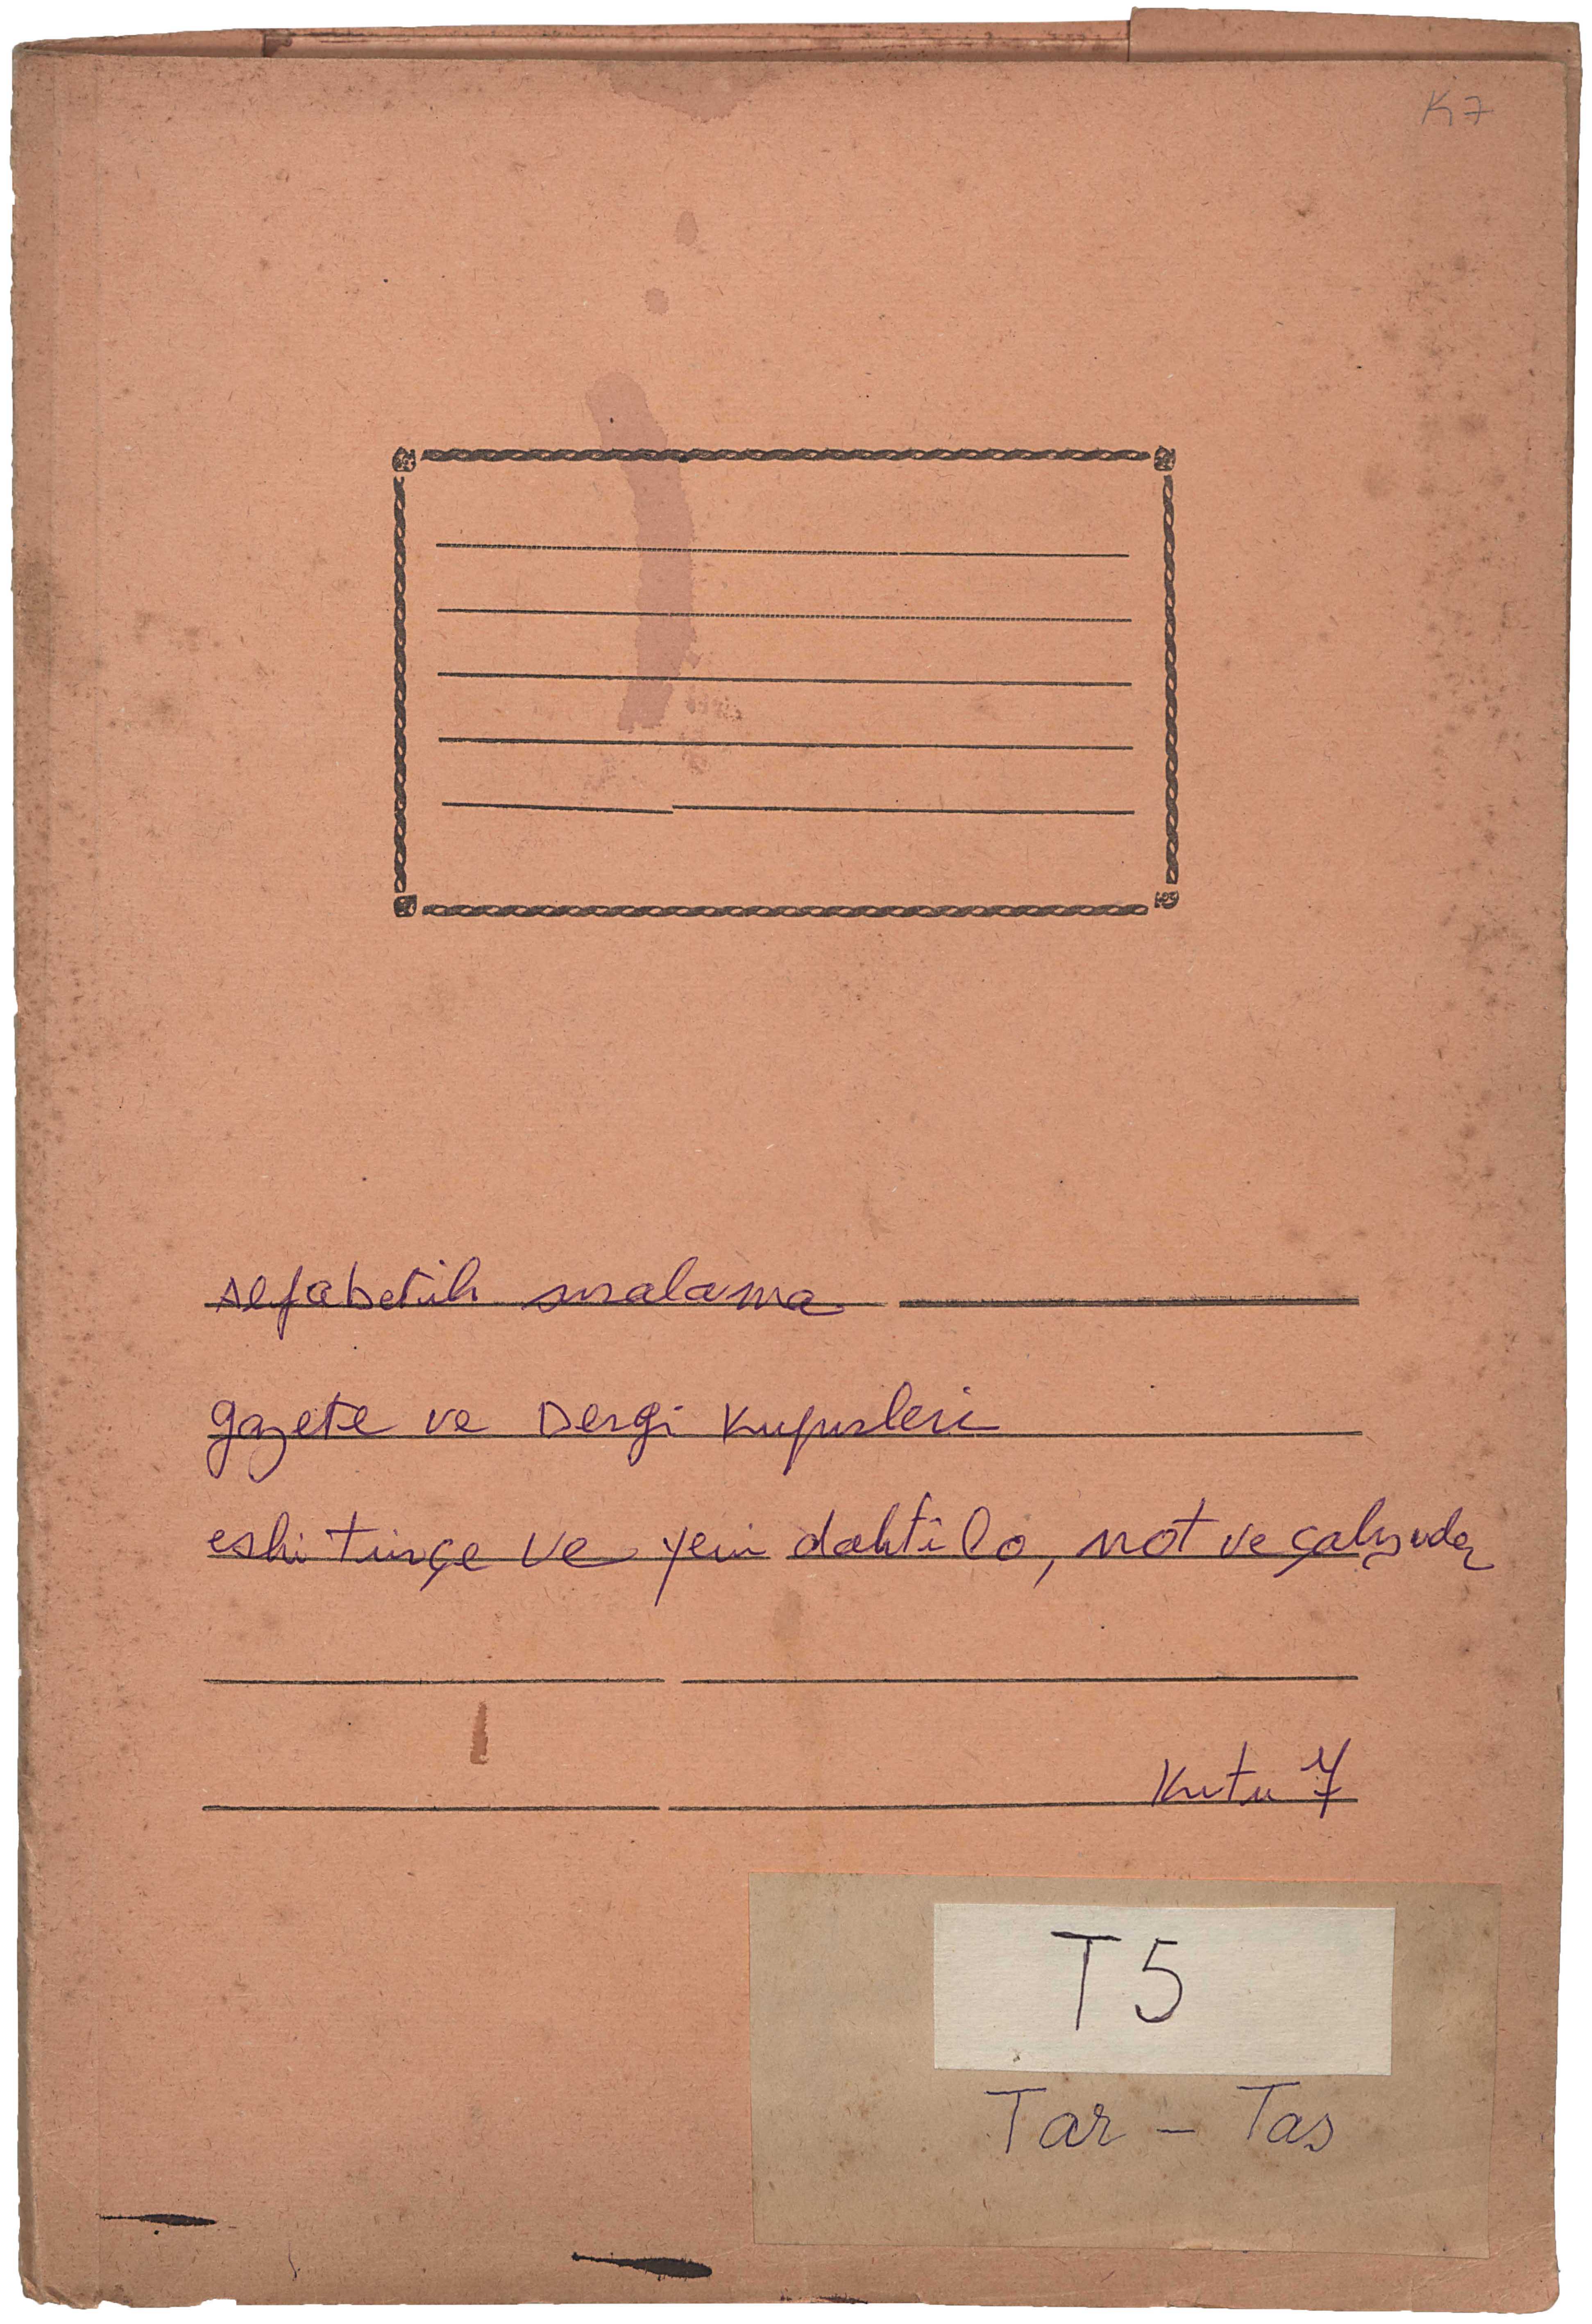 K7
Alfabetik sıralama
gazete ve Dergi kupürleri
eski türkçe ve yeni daktilo, not ve çalışmalar
Kutu 7
T5
Tar - Tas